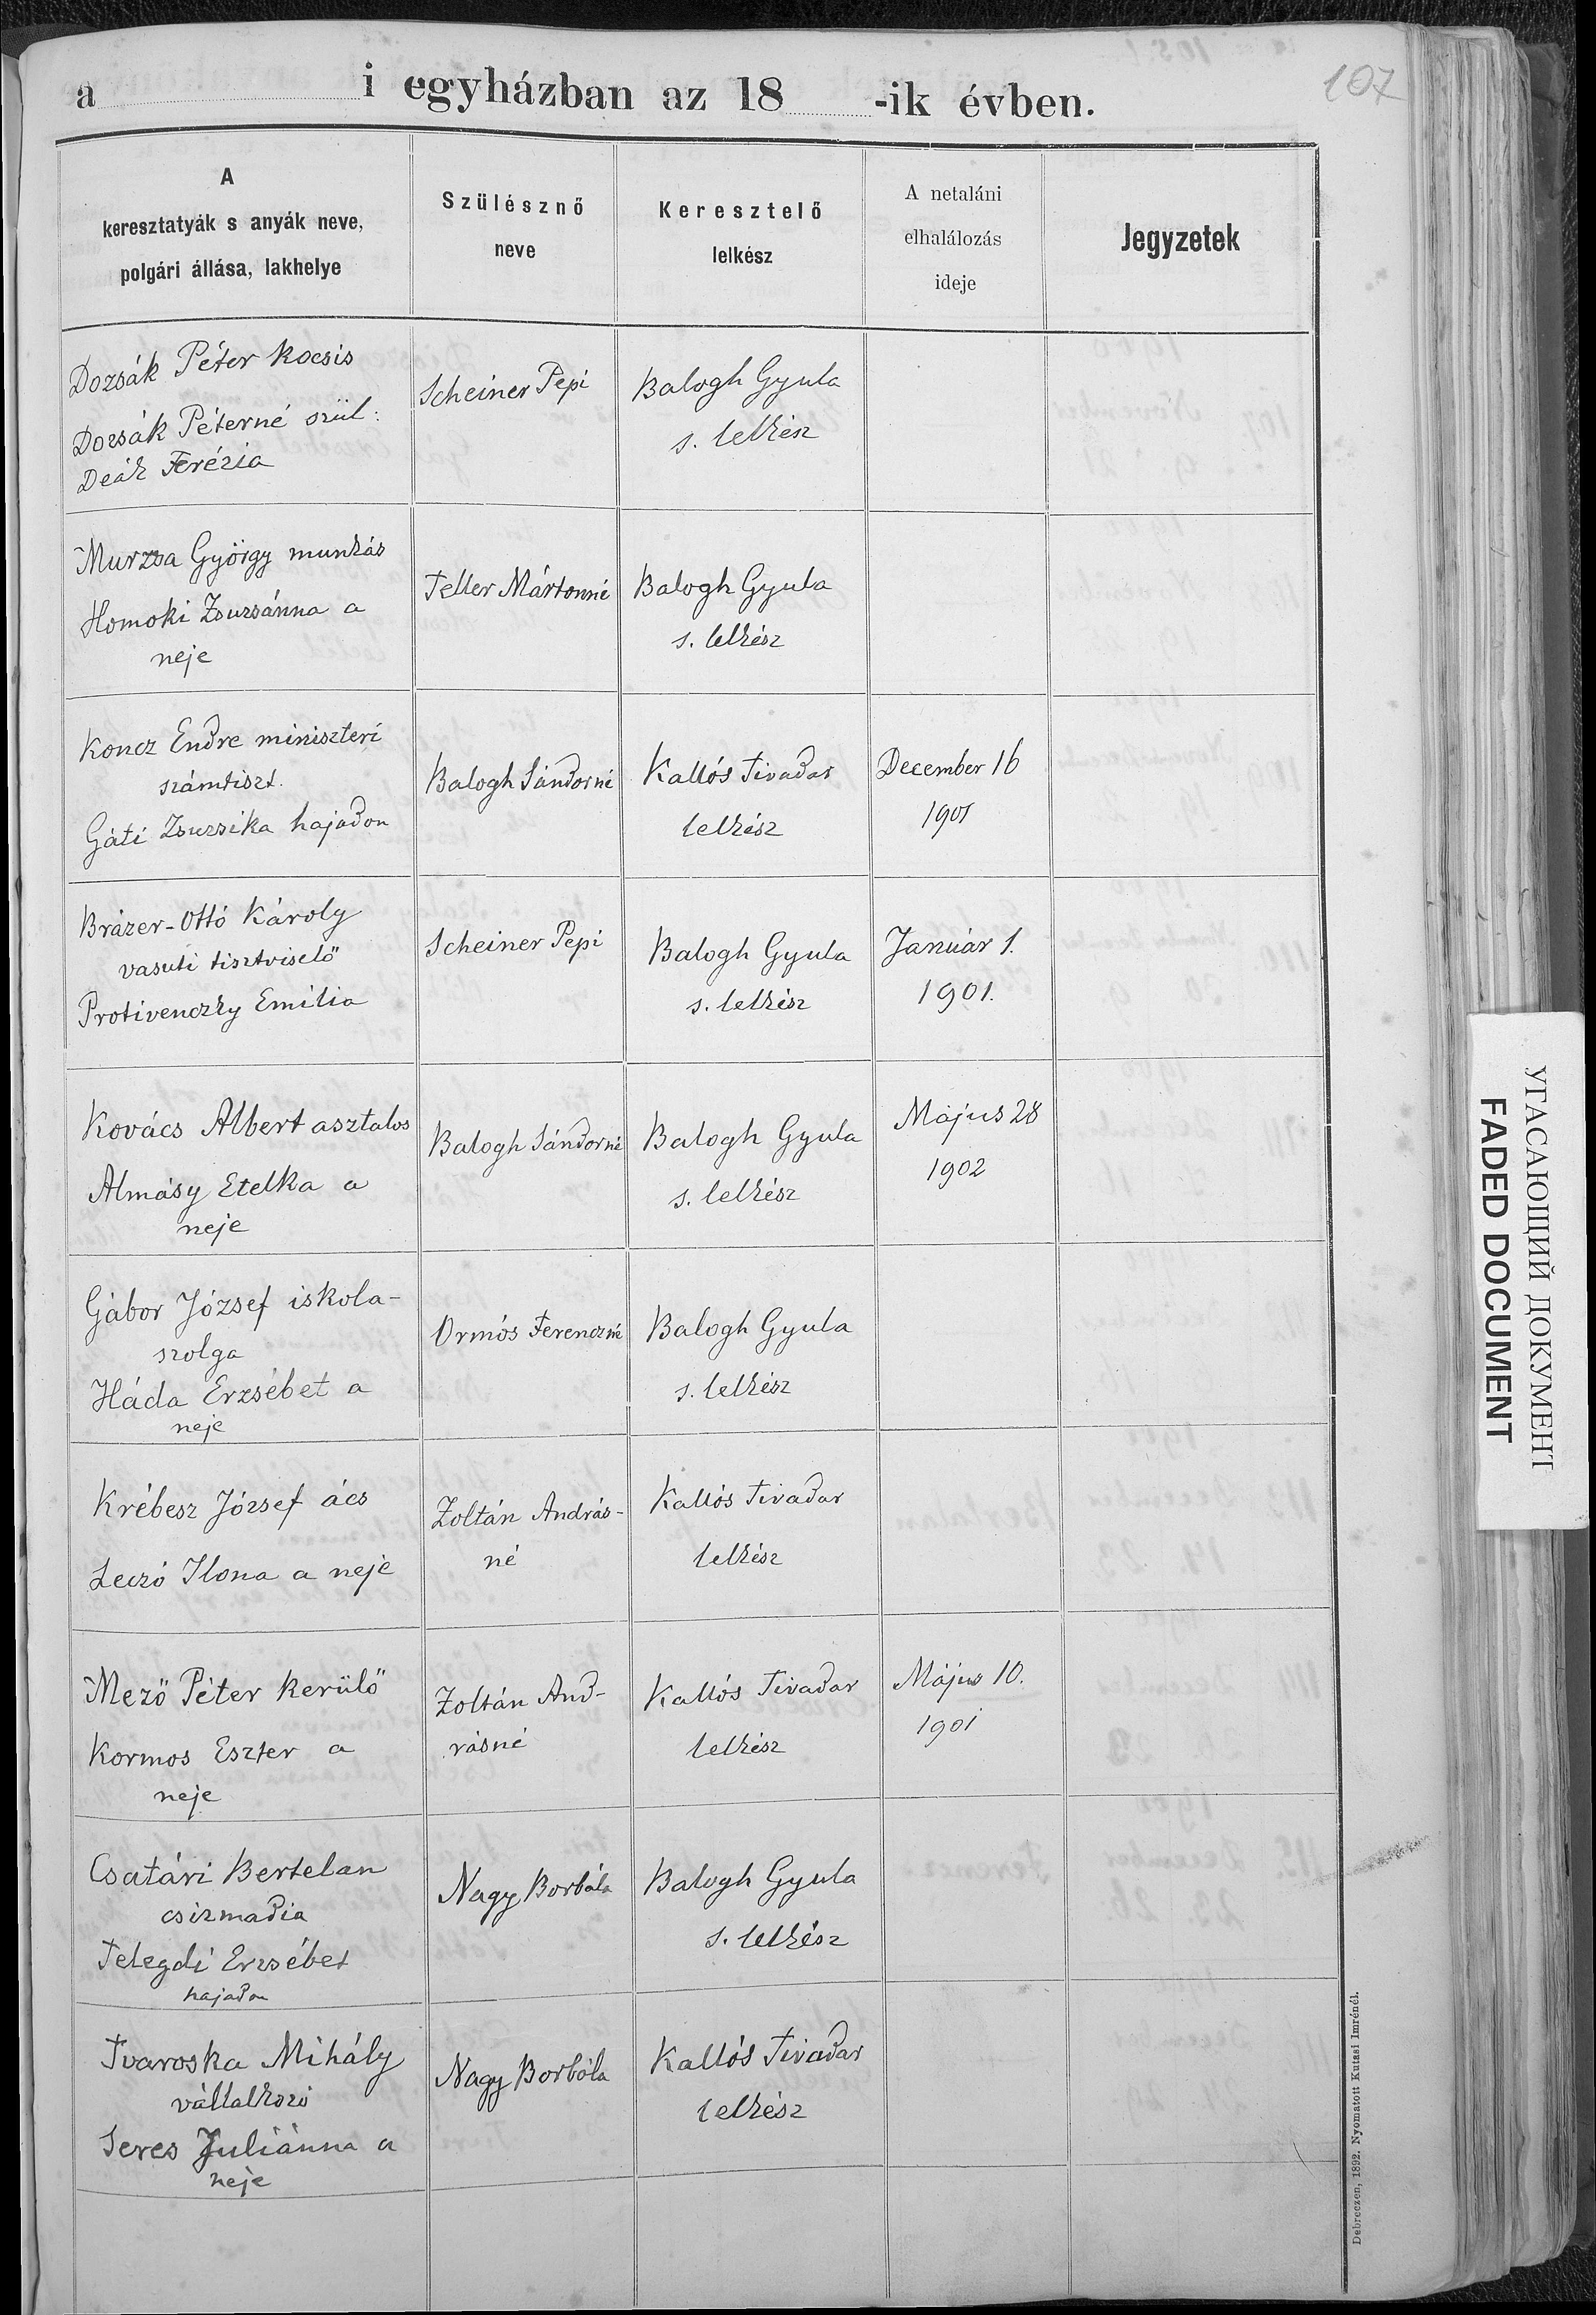 107
a i egyházban az 18 -ik évben.
A
keresztatyák s anyák neve,
polgári állása, lakhelye
Szülésznő
neve
Keresztelő
lelkész
A netaláni
elhalálozás
ideje
Jegyzetek
Dozsák Péter kocsis
Dozsák Péterné szül:
Deák Terézia
Scheiner Pepi
Balogh Gyula
s. lelkész
Murzsa György munkás
Homoki Zsuzsánna a
neje
Teller Mártonné
Balogh Gyula
s. lelkész
Koncz Endre miniszteri
számtiszt.
Gáti Zsuzsika hajadon
Balogh Sándorné
Kallós Tivadar
lelkész
December 16
1901
Brázer-Ottó Károly
vasuti tisztviselő
Protivenczky Emilia
Scheiner Pepi
Balogh Gyula
s. lelkész
Január 1.
1901.
Kovács Albert asztalos
Almásy Etelka a
neje
Balogh Sándorné
Balogh Gyula
s. lelkész
Május 28
1902
Gábor József iskola-
szolga
Háda Erzsébet a
neje
Ormós Ferenczné
Balogh Gyula
s. lelkész
Krébesz József ács
Leczó Ilona a neje
Zoltán András-
né
Kallós Tivadar
lelkész
Mező Péter kerülő
Kormos Eszter a
neje
Zoltán And-
rásné
Kallós Tivadar
lelkész
Május 10.
1901
Csatári Bertelan
csizmadia
Telegdi Erzsébet
hajadon
Nagy Borbála
Balogh Gyula
s. lelkész
Tvaroska Mihály
vállalkozó
Seres Juliánna a
neje
Nagy Borbóla
Kallós Tivadar
lelkész
Debreczen, 1892. Nyomatott Kutasi Imrénél.
УГАСАЮЩИЙ ДОКУМЕНТ
FADED DOCUMENT